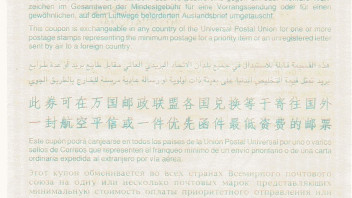 zeichen im Gesamtwert der Mindestgebühr für eine Vorrangsendung oder für einen
gewöhnlichen, auf dem Luftwege beförderten Auslandsbrief umgetauscht.
This coupon is exchangeable in any country of the Universal Postal Union for one or more
postage stamps representing the minimum postage for a priority item or an unregistered letter
sent by air to a foreign country.
此券可在万国邮政联盟各国兑换等于寄往国外
一封航空平信或一件优先函件最低资费的邮票
Este cupón podrá canjearse en todos los países de la Unión Postal Universal por uno o varios
sellos de Correos que representen el franqueo mínimo de un envío prioritario o de una carta
ordinaria expedida al extranjero por vía aérea.
Этот купон обменивается во всех странах Всемирного почтового
союза на одну или несколько почтовых марок, представляющих
минимальную стоимость оплаты приоритетного отправления или